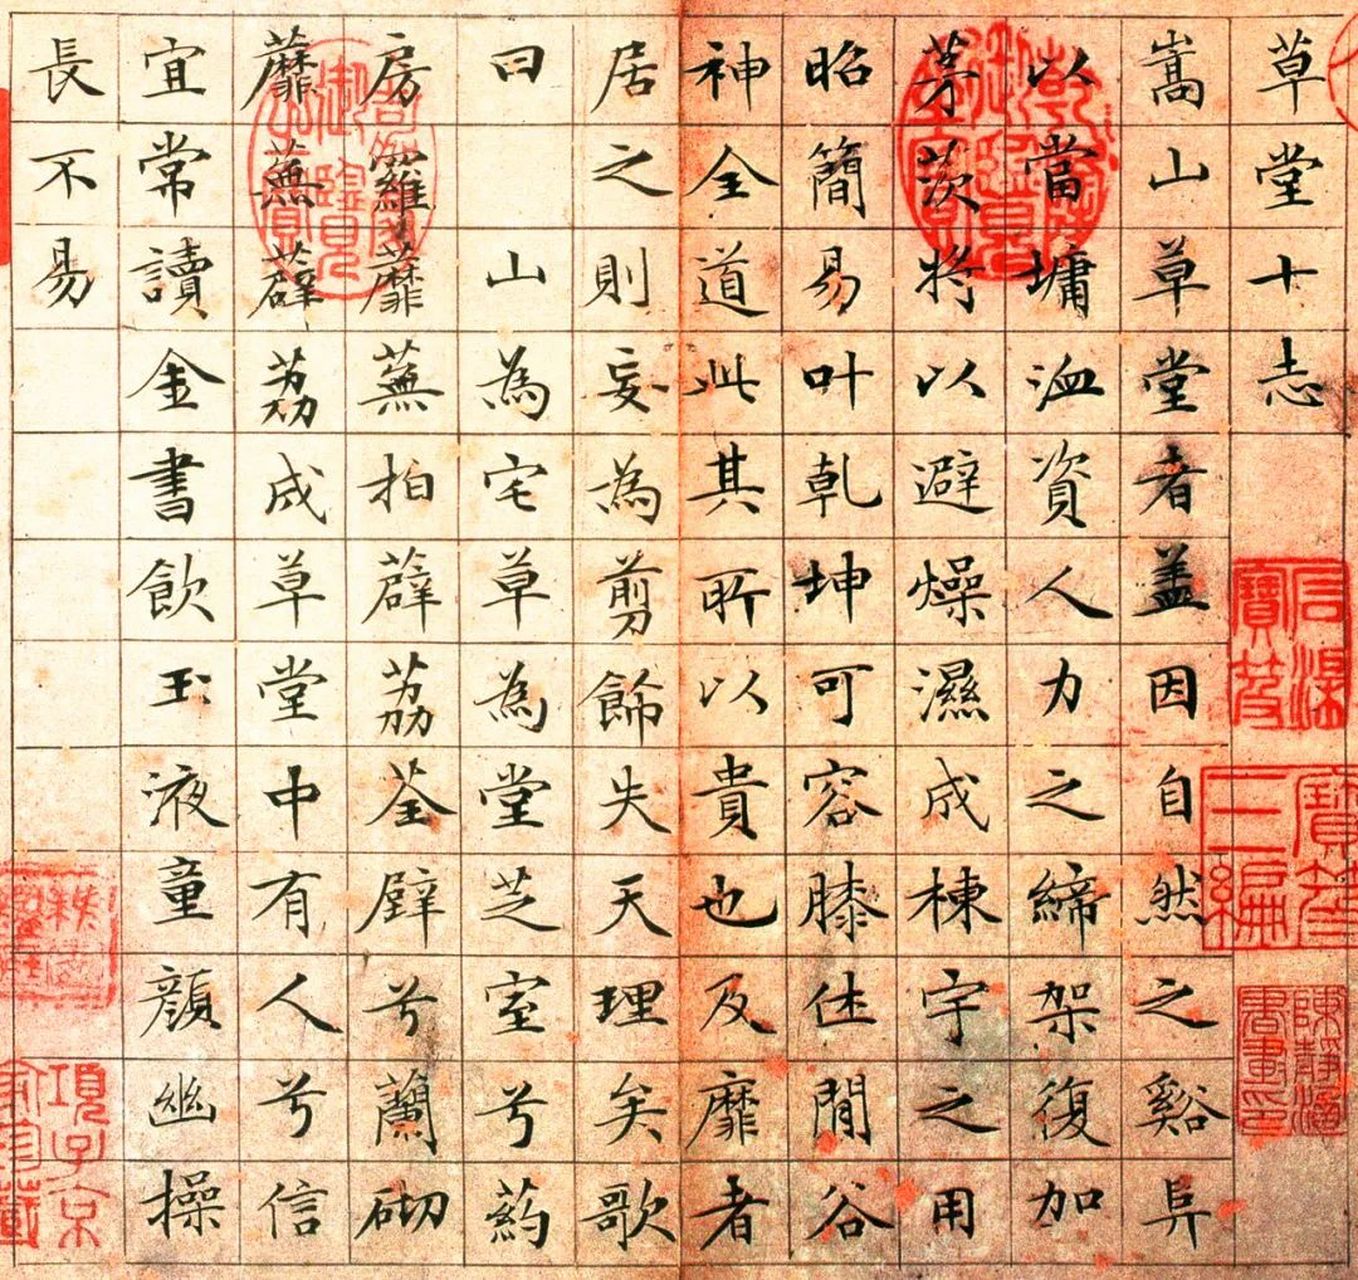 草堂十志
嵩山草堂者盖因自然之谿阜
以當墉洫資人力之締架復加
茅茨将以避燥濕成棟宇之用
昭簡易叶乾坤可容膝休閒谷
神全道此其所以貴也及靡者
居之則妄為剪飾失天理矣歌
曰 山為宅草為堂芝室兮葯
房羅蘼蕪拍薜荔荃壁兮蘭砌
蘼蕪薜荔成草堂中有人兮信
宜常讀金書飲玉液童顔幽操
長不易
石渠寶笈
寶笈三編
項子京家珍藏